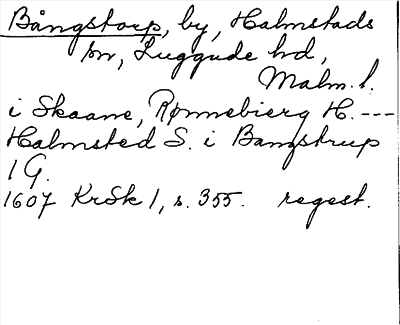 Bångstorp, by, Halmstads
sn, Luggude hd,
Malm. l.
i Skaane, Rønnebierg H. ---
Halmsted S. i Bangstrup
1 G.
1607 KrSk 1, s. 355. regest.